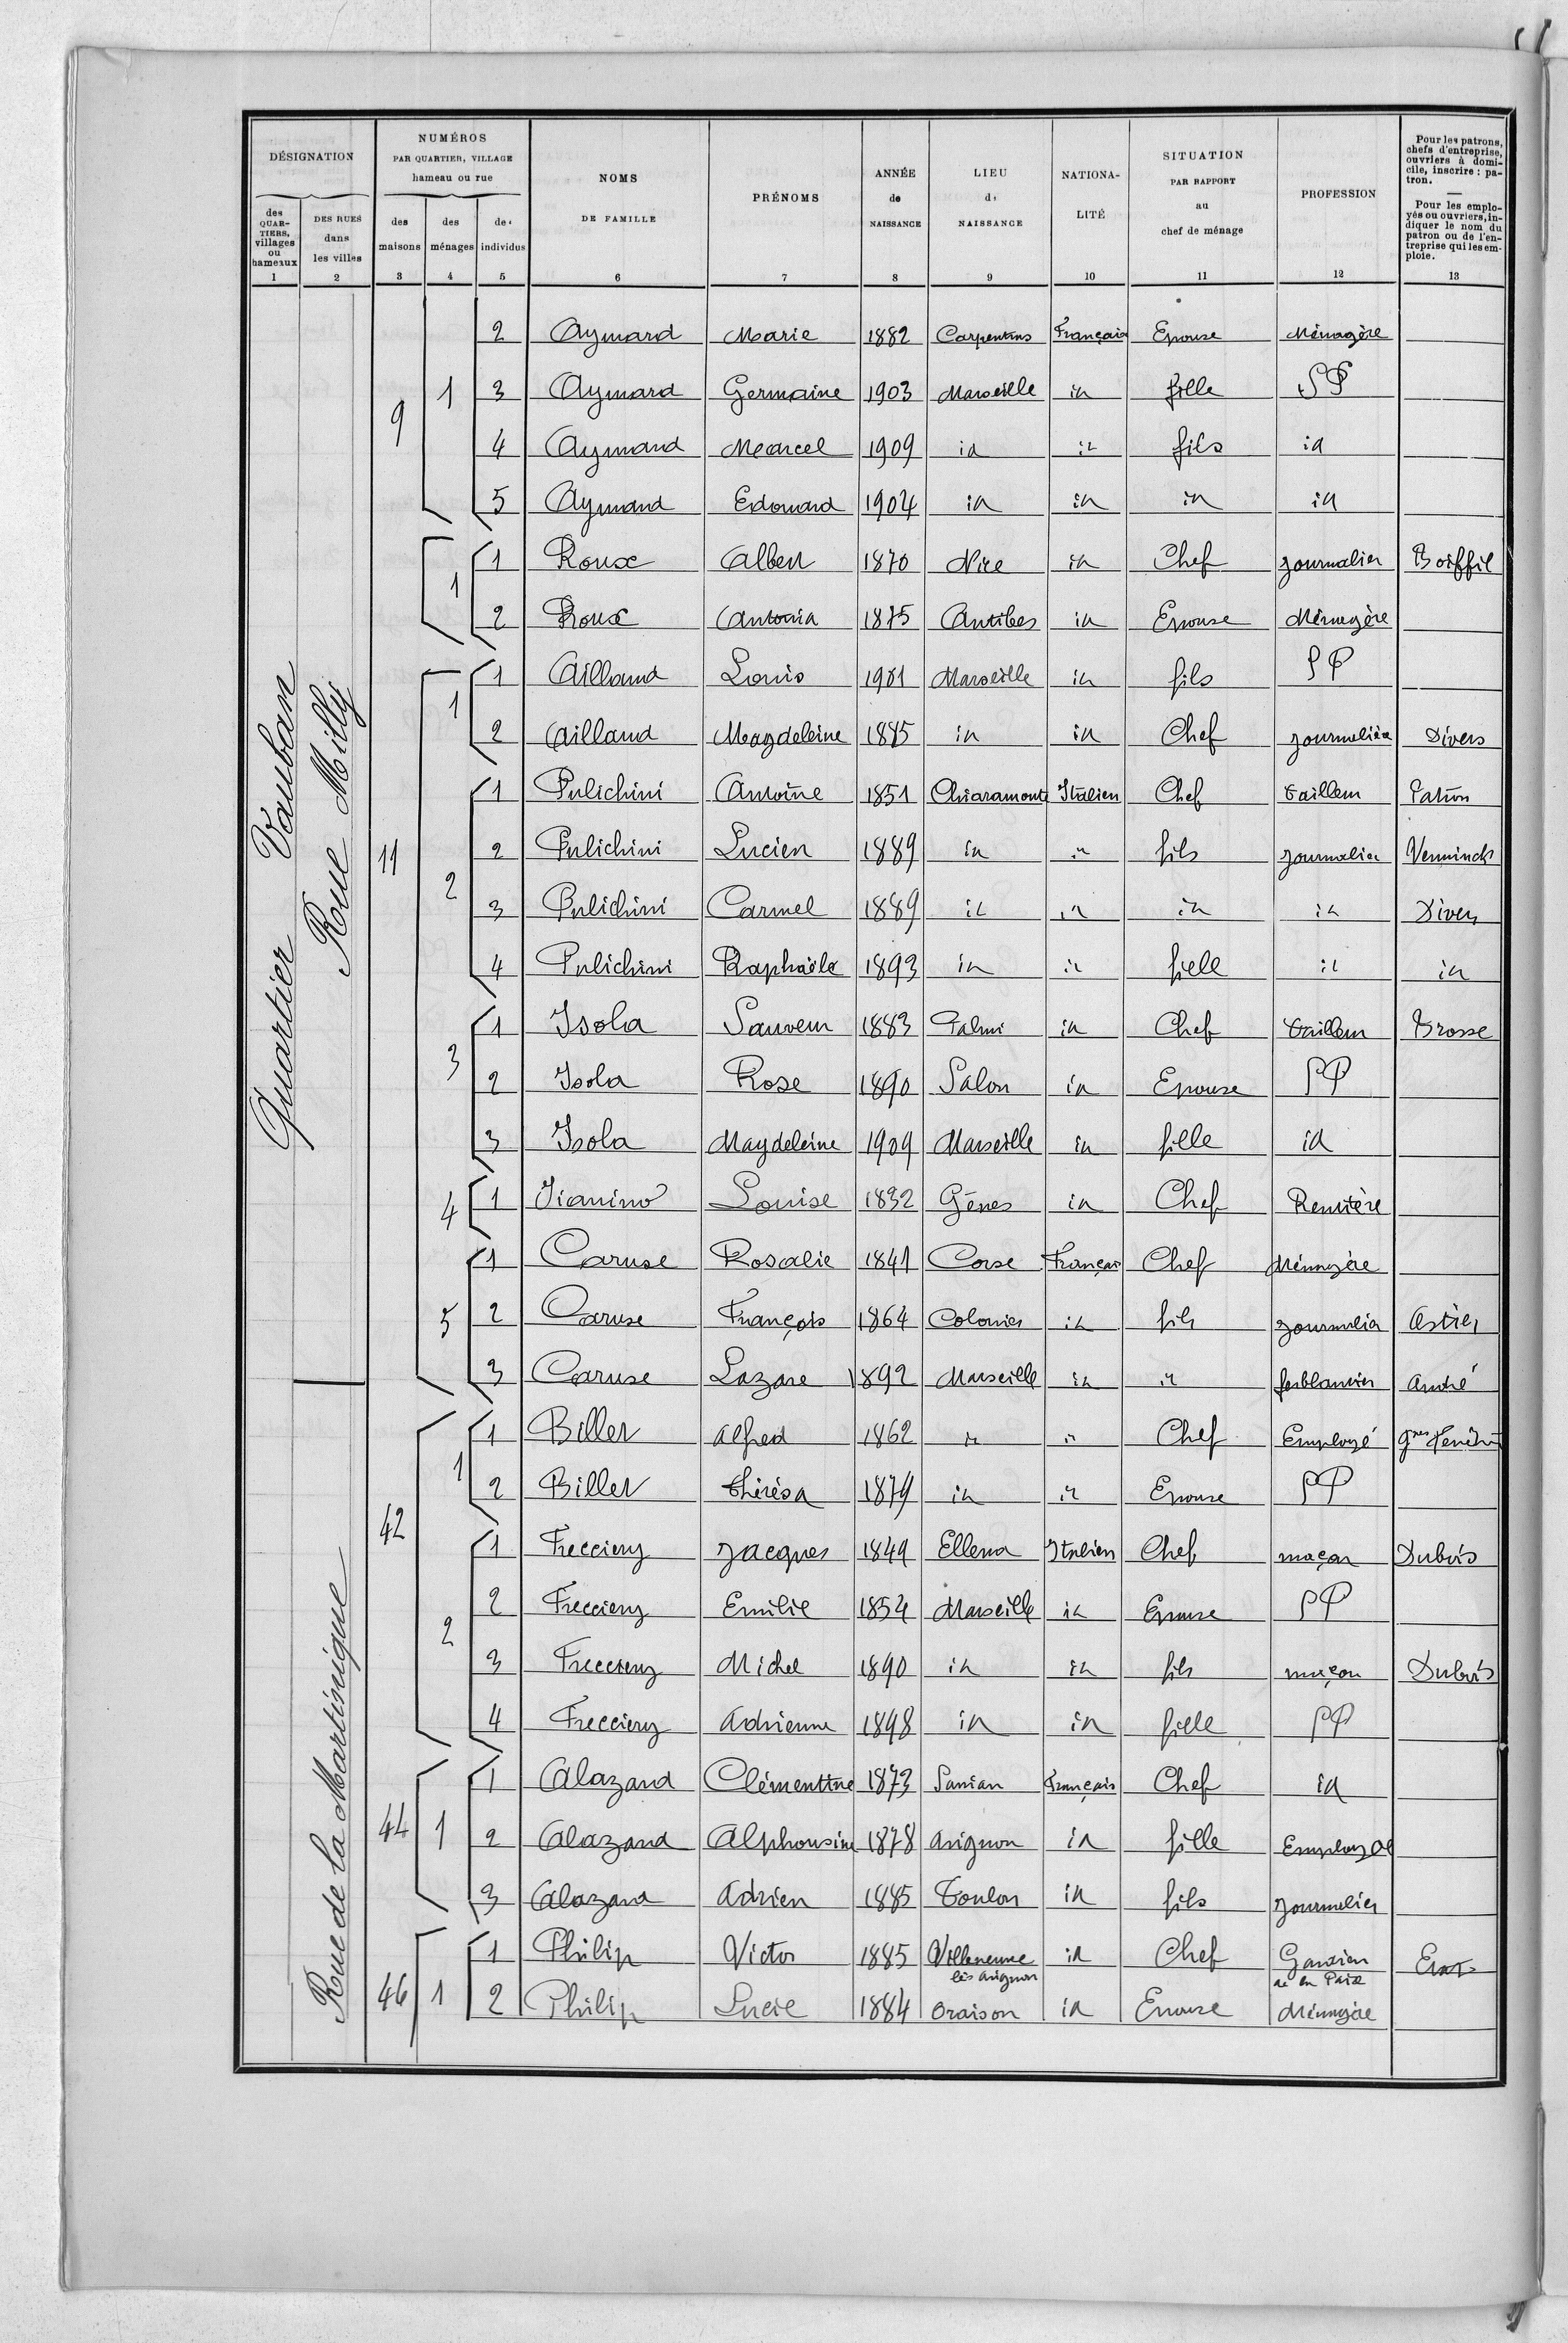 DÉSIGNATION
NUMÉROS
PAR QUARTIER, VILLAGE
hameau ou rue
NOMS
DE FAMILLE
PRÉNOMS
ANNÉE
de
NAISSANCE
LIEU
de
NAISSANCE
NATIONA-
LITÉ
SITUATION
PAR RAPPORT
au
chef de ménage
PROFESSION
Pour les patrons,
chefs d'entreprise,
ouvriers à domi-
cile, inscrire : pa-
tron.
Pour les emplo-
yés ou ouvriers, in-
diquer le nom du
patron ou de l'en-
treprise qui les em-
ploie.
des
QUAR-
TIERS,
villages
ou
hameaux
DES RUES
dans
les villes
des
maisons
des
ménages
des
individus
1 2 3 4 5 6 7 8 9 10 11 12 13
Quartier Vauban
Roue Milly
9 1
2 Aymard Marie 1882 Carpentras Français Epouse Ménagère
3 Aymard Germaine 1903 Marseille id fille SP
4 Aymard Marcel 1909 id id fils id
5 Aymard Edouard 1904 id id id id
11
1
1 Roux Albert 1870 Nice id Chef journalier Boiffil
2 Roux Antonia 1875 Antibes id Epouse Ménagère
1
1 Aillaud Louis 1901 Marseille id fils SP
2 Aillaud Magdeleine 1885 id id Chef journalière Divers
2
1 Pulichini Antoine 1851 Chiaramonte Italien Chef tailleur Patron
2 Pulichini Lucien 1889 id id fils journalier Verminck
3 Pulichini Carmel 1889 id id id id Divers
4 Pulichini Raphaële 1893 id id fille id id
3
1 Isola Sauveur 1883 Palmi id Chef tailleur Brosse
2 Isola Rose 1890 Salon id Epouse SP
3 Isola Magdeleine 1909 Marseille id fille id
4
1 Jianino Louise 1832 Gênes id Chef Rentière
5
1 Caruse Rosalie 1841 Corse Français Chef Ménagère
2 Caruse François 1864 Colonies id fils journalier Astier
3 Caruse Lazare 1892 Marseille id id ferblantier André
Roue de la Martinique
42 1
1 Biller Alfred 1862 id id Chef Employé
2 Biller thérésa 1879 id id Epouse SP
2
1 Frecciery Jacques 1849 Ellena Italien Chef maçon Dubois
2 Frecciery Emilie 1854 Marseille id Epouse SP
3 Frecciery Michel 1890 id id fils maçon Dubois
4 Frecciery Adrienne 1898 id id fille SP
44 1
1 Alazard Clémenttne 1873 Français Chef id
2 Alazard Alphonsine 1878 Avignon id fille Employée
3 Alazard Adrien 1885 Toulon id fils journalier
46 1
1 Philip Victor 1885 Villeneuve lès Avignon id Chef Gardien de la Paix Etat
2 Philip Lucie 1884 Oraison id Epouse Ménagère